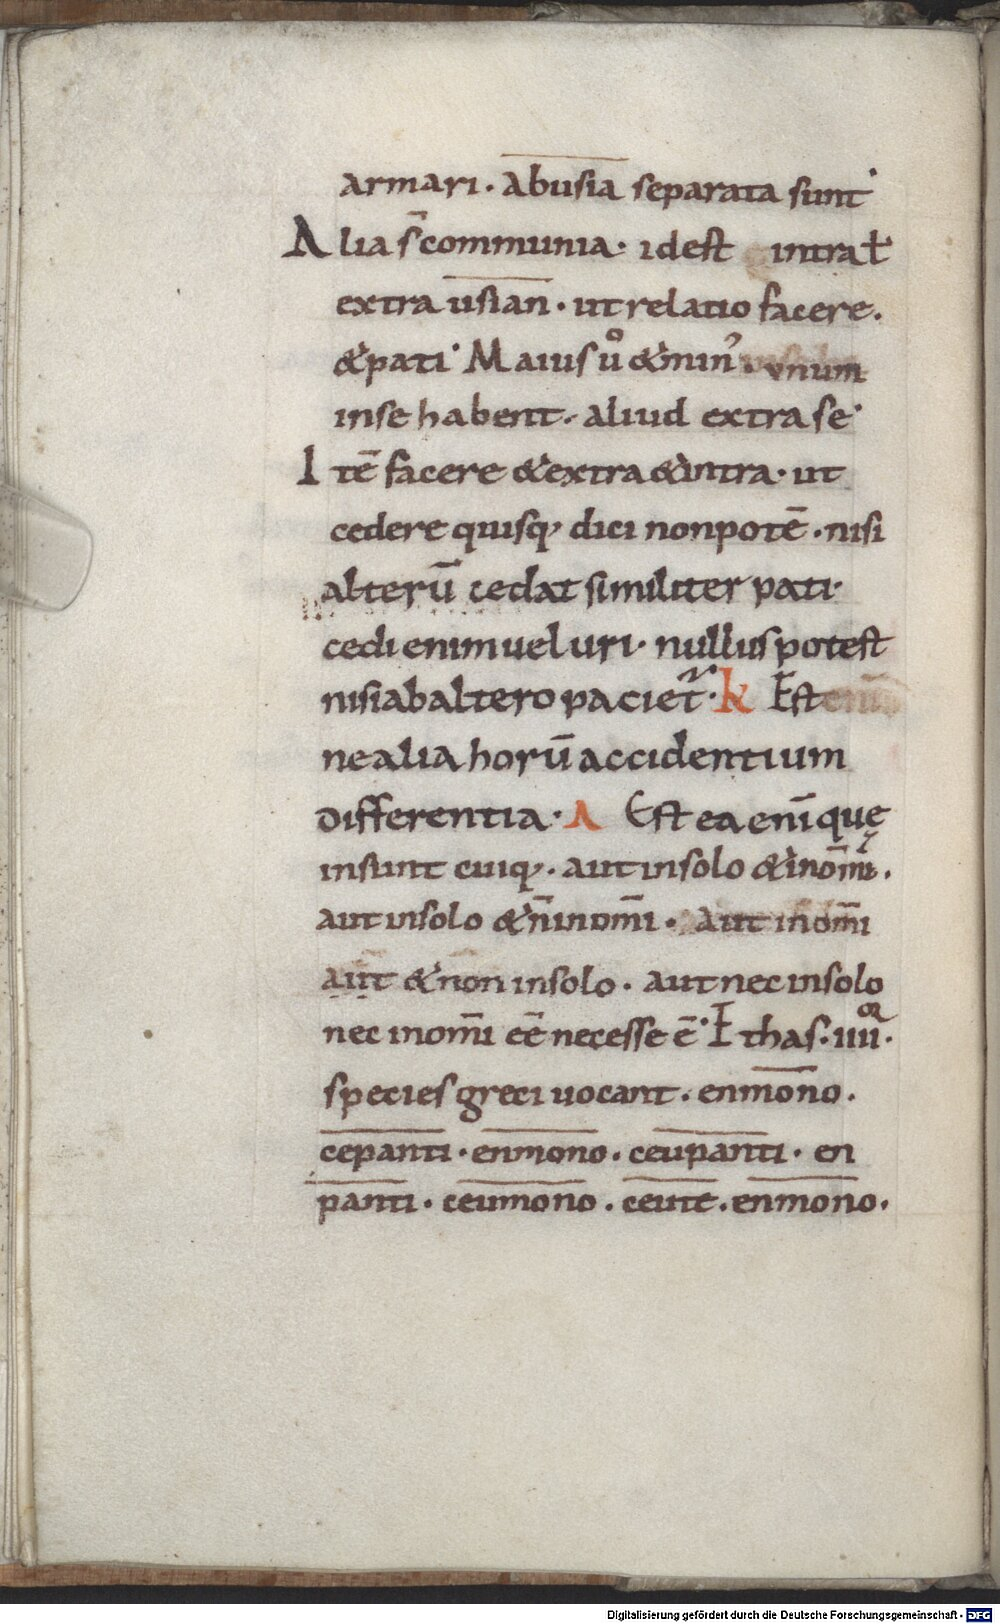 armari · abusia separata sunt·
Alia s̄ communia · idest intra ł
extra usian · ut relatio facere ·
&pati· Maius uͦ & min᾽ · unum
inse habent · aliud extra se·
Itē facere & extra & intra · ut
cedere quisq; dici nonpotē · nisi
alterū cedat similiter pati·
cedi enim uel uri · nullus potest
nisi ab altero pacietᷣ · k Est
ne alia horū accidentium
differentia · Λ Est ea enī quę
insunt cuiq; · aut insolo & inom̄i ·
aut insolo & n̄ inom̄i · aut inom̄i
aut & non insolo · aut nec insolo
nec inom̄i eē necesse ē · Et has · iiiior ·
species greci uocant · enmono ·
cepanti · enmono · ceupanti · en
panti · ceumono · ceute · enmono ·
Digitalisierung gefördert durch die Deutsche Forschungsgemeinschaft - DFG